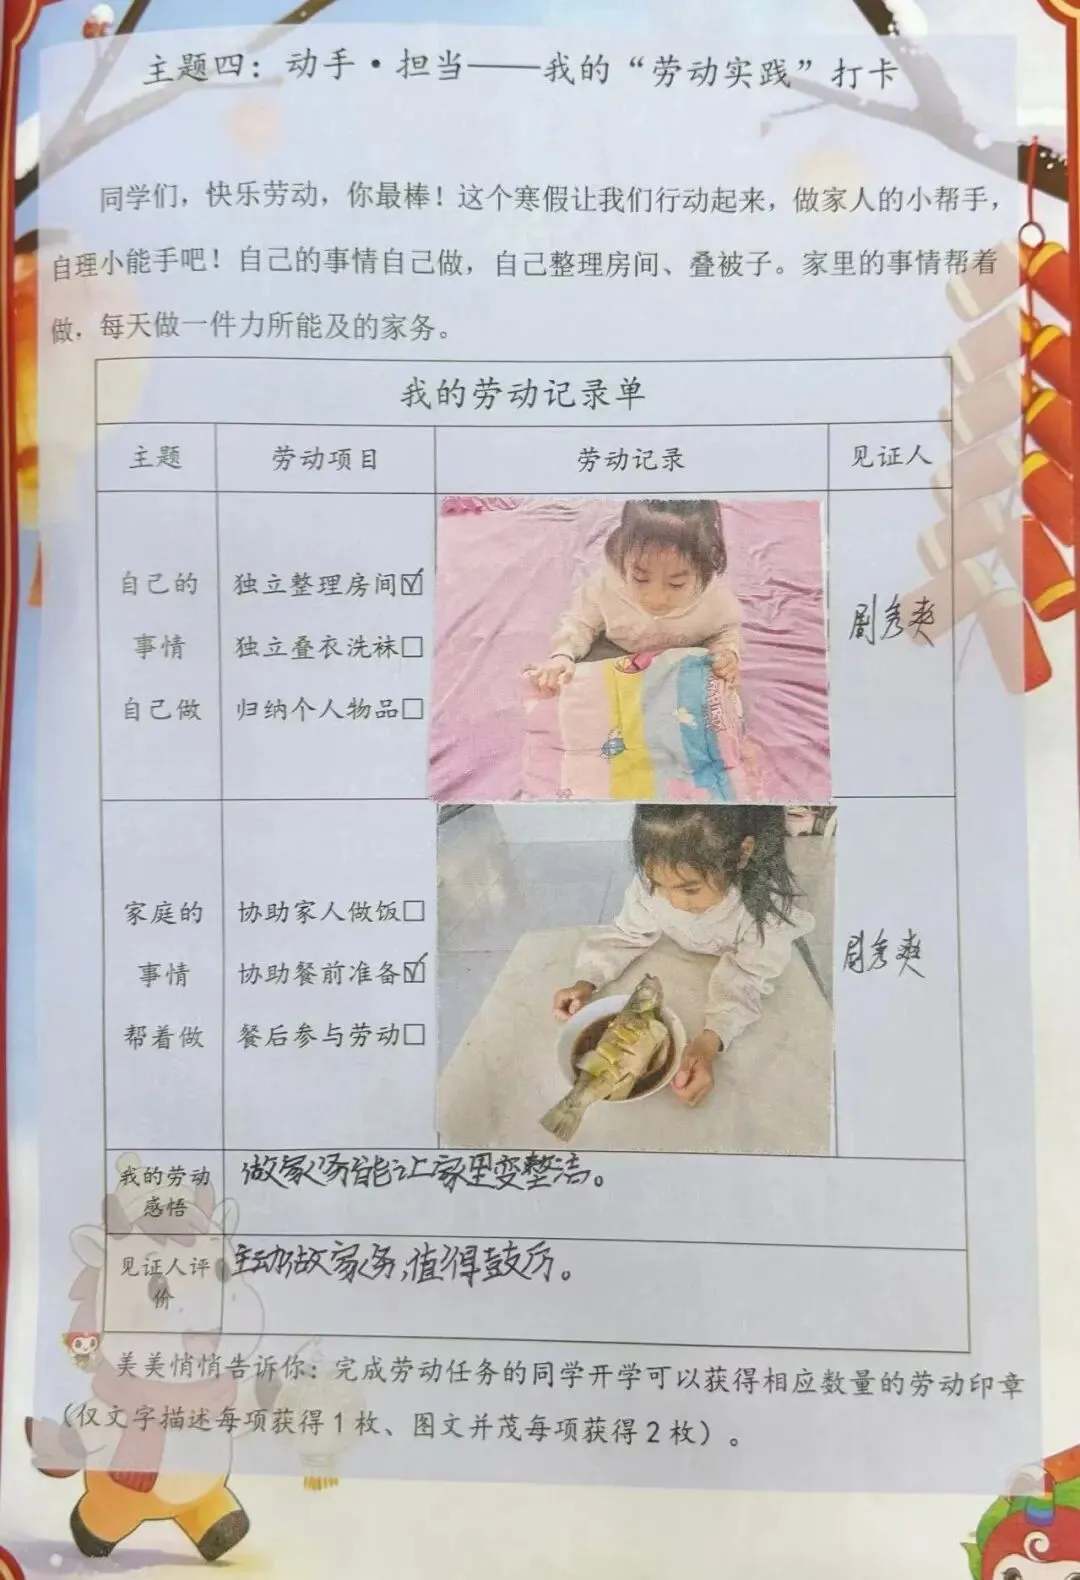 主题四：动手·担当——我的“劳动实践”打卡
同学们，快乐劳动，你最棒！这个寒假让我们行动起来，做家人的小帮手，
自理小能手吧！自己的事情自己做，自己整理房间、叠被子。家里的事情帮着
做，每天做一件力所能及的家务。
我的劳动记录单
主题 劳动项目 劳动记录 见证人
自己的 独立整理房间☑
事情 独立叠衣洗袜□
自己做 归纳个人物品□
秀爽
家庭的 协助家人做饭□
事情 协助餐前准备☑
帮着做 餐后参与劳动□
秀爽
我的劳动
感悟
做家务能让家里变整洁。
见证人评
价
主动做家务，值得鼓厉。
美美悄悄告诉你：完成劳动任务的同学开学可以获得相应数量的劳动印章
（仅文字描述每项获得1枚、图文并茂每项获得2枚）。